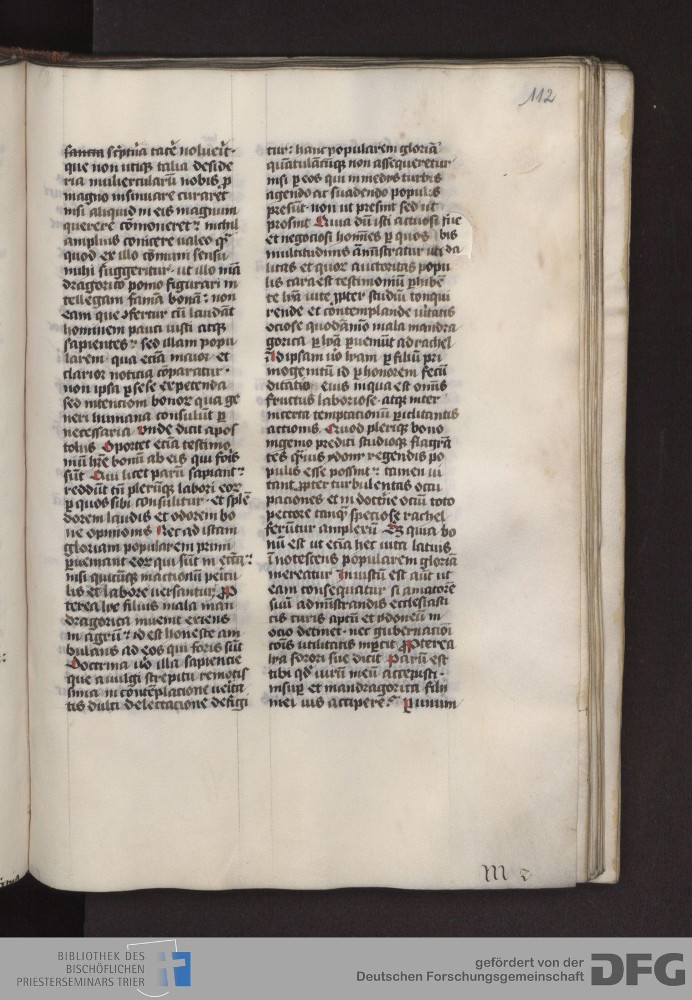 112
sancta sc̄ptu̾a tacē noluerit·
que non utiqȝ talia deside
ria muliercularū nobis ꝑ
magno insinuare curaret
nisi aliquid in eis magnum
querere cōmoneret: nichil
amplius conicere ualeo qͣ
quod ex illo cōmuni sensu
michi suggeritur· ut illo mā
dragorico pomo figurari in
tellegam famā bonā: non
eam que ꝯfertur cū laudāt
hominem pauci iusti atqȝ
sapientes: sed illam popu
larem· qua etiā maior et
clarior noticia cōparatur·
non ipsa ꝑ sese expetenda
sed intencioni bonoꝝ qua ge
neri humano consulūt ꝑ
necessaria Vnde dicit apos
tolus Oportet etiā testimo
niū hr̄e bonū ab eis qui foris
sūt Qui licet parū sapiant:
reddūt tn̄ plerūqȝ labori eoꝝ
ꝑ quos sibi consulitur· et splē
dorem laudis et odorem bo
ne opinionis Nec ad istam
gloriam popularem primi
ꝑueniunt eoꝝ qui sūt in ecc̄a:
nisi quicūqȝ in actionū pericu
lis et labore uersantur Pro
terea lye filius mala man
dragorica inuenit exiens
in agrū: id est honeste am
bulans ad eos qui foris sūt
Doctrina u̾o illa sapiencie
que a uulgi strepitu remotis
sima in cōteplacione uerita
tis dulci delectacione defigi
tur: hanc popularem gloriā
quātulācūqȝ non assequeretur
nisi ꝑ eos qui in mediis turbis
agendo ac suadendo populis
presūt· non ut presint sed ut
prosint Quia dū isti actuosi
et negociosi homīes ꝑ quos bis
multitudinis āmīstratur uti da
litas et quoꝝ auctoritas popu
lis cara est testimoniū ꝑhibēt
te hr̄ā uite ꝓpter studiū conqui
rende et contemplande ueritatis
ociose quodāmō mala mandra
gorica ꝑ lyā ꝑueniūt ad rachel
Ad ipsam u̾o lyam ꝑ filiū pri
mogenitū id ꝑ honorem fecū
ditatis eius in qua est omīs
fructus laboriose· atqȝ inter
incerta temptacionū ꝑiclitantis
actionis Quod pleriqȝ bono
ingenio prediti studioqȝ flagrā
tes quīs ydonei regendis po
pulis esse possint: tamen ui
tant ꝓpter turbulentas occu
paciones et in doctrīe ociū toto
pectore tanqͣ speciose rachel
ferūtur amplexū Et quia bo
nū est ut etiā hec uita latius
īnotescens popularem gloriā
mereatur Iniustū est aūt ut
eam consequatur si amatorē
suū administrandis ecclesiasti
cis curis aptū et ydoneū in
ocio detinet· nec gubernacioni
cōis utilitatis imptit Propterea
lya sorori sue dicit Parū est
tibi qd̾ uirū meū accepisti·
insuꝑ et mandragorica filii
mei uis accipere: ꝑ unum
BIBLIOTHEK DES
BISCHÖFLICHEN
PRIESTERSEMINARS TRIER
gefördert von der
Deutschen Forschungsgemeinschaft
DFG